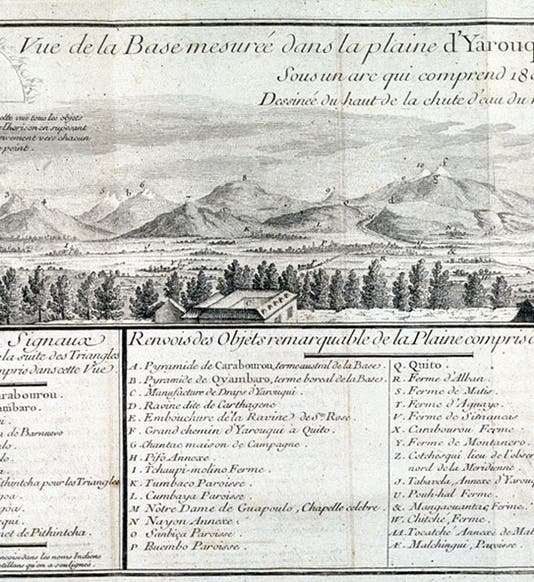 Vue de la Base mesureé dans la plaine d'Yarouq
Sous un arc qui comprend 18
Dessinée du haut de la chute d'eau du
cette vue tous les objets
l'horison en suposant
vers chacun
point.
3 4 5 b 6 7 8 9 10 f
Signaux
la suite des Triangles
mpris dans cette Vue.
arabourou.
ambaro.
u
a de Barnuevo
do.
a.
hintcha pour les Triangles
goa.
goas.
gui.
met de Pithintcha.
dans les noms Indiens
tillans qu'on a soulignés.
Renvois des Objets remarquable de la Plaine compris d
A. Pyramide de Carabourou, terme austral de la Base
B. Pyramide de Oyambaro, terme boreal de la Base.
C. Manufacture de Draps d'Yarouqui.
D. Ravine dite de Carthagene
E. Embouchure de la Ravine de Ste Rose.
F. Grand chemin d'Yarouqui à Quito.
G. Chantac maison de Campagne.
H. Pifo Annexe.
I. Tchaupi-molino Ferme.
K. Tumbaco Paroisse.
L. Cumbaya Paroisse.
M Nôtre Dame de Guapoulo, Chapelle célebre.
N Nayon Annexe.
O Sanbiça Paroisse.
P Buembo Paroisse.
Q. Quito.
R. Ferme d'Alban.
S. Ferme de Matis.
T. Ferme d'Agnayo.
V. Ferme de Simancas
X. Carabourou Ferme.
Y. Ferme de Montanero.
Z. Cotchesqui lieu de l'obser
nord de la Meridienne
J. Tabavela, Annexe d'Yarouq
U. Pouh-hal Ferme.
&. Mangaouantac, Ferme.
W. Chitche, Ferme.
AA. Tocatche Annexe de Mal
Æ. Malchingui, Paroisse.